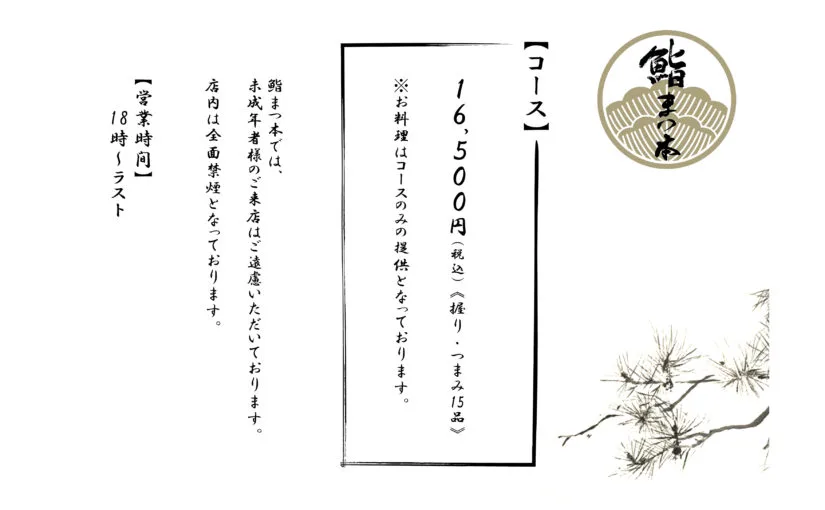 鮨まつ本
【コース】
16,500円(税込)《握り・つまみ15品》
※お料理はコースのみの提供となっております。
鮨まつ本では、
未成年者様のご来店はご遠慮いただいております。
店内は全面禁煙となっております。
【営業時間】
18時~ラスト